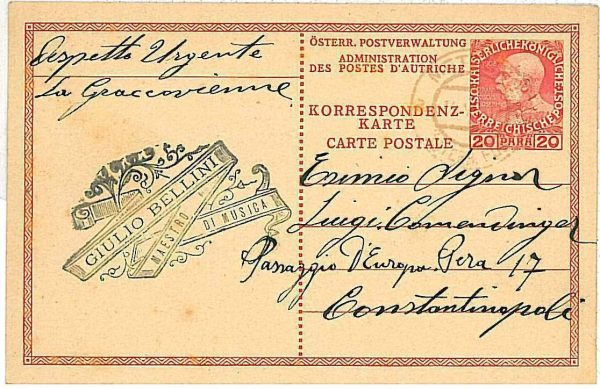 Aspetto Urgente
la Graccovienne
GIULIO BELLINI
MAESTRO DI MUSICA
ÖSTERR. POSTVERWALTUNG
ADMINISTRATION
DES POSTES D'AUTRICHE
KORRESPONDENZ-
KARTE
CARTE POSTALE
KAISERLICHEKÖNIGLICHE
ÖSTERREICHISCHE POST
20 PARA 20
Esimio Signor
Luigi Comendinger
Passaggio d'Europa Pera 17
Constantinopoli